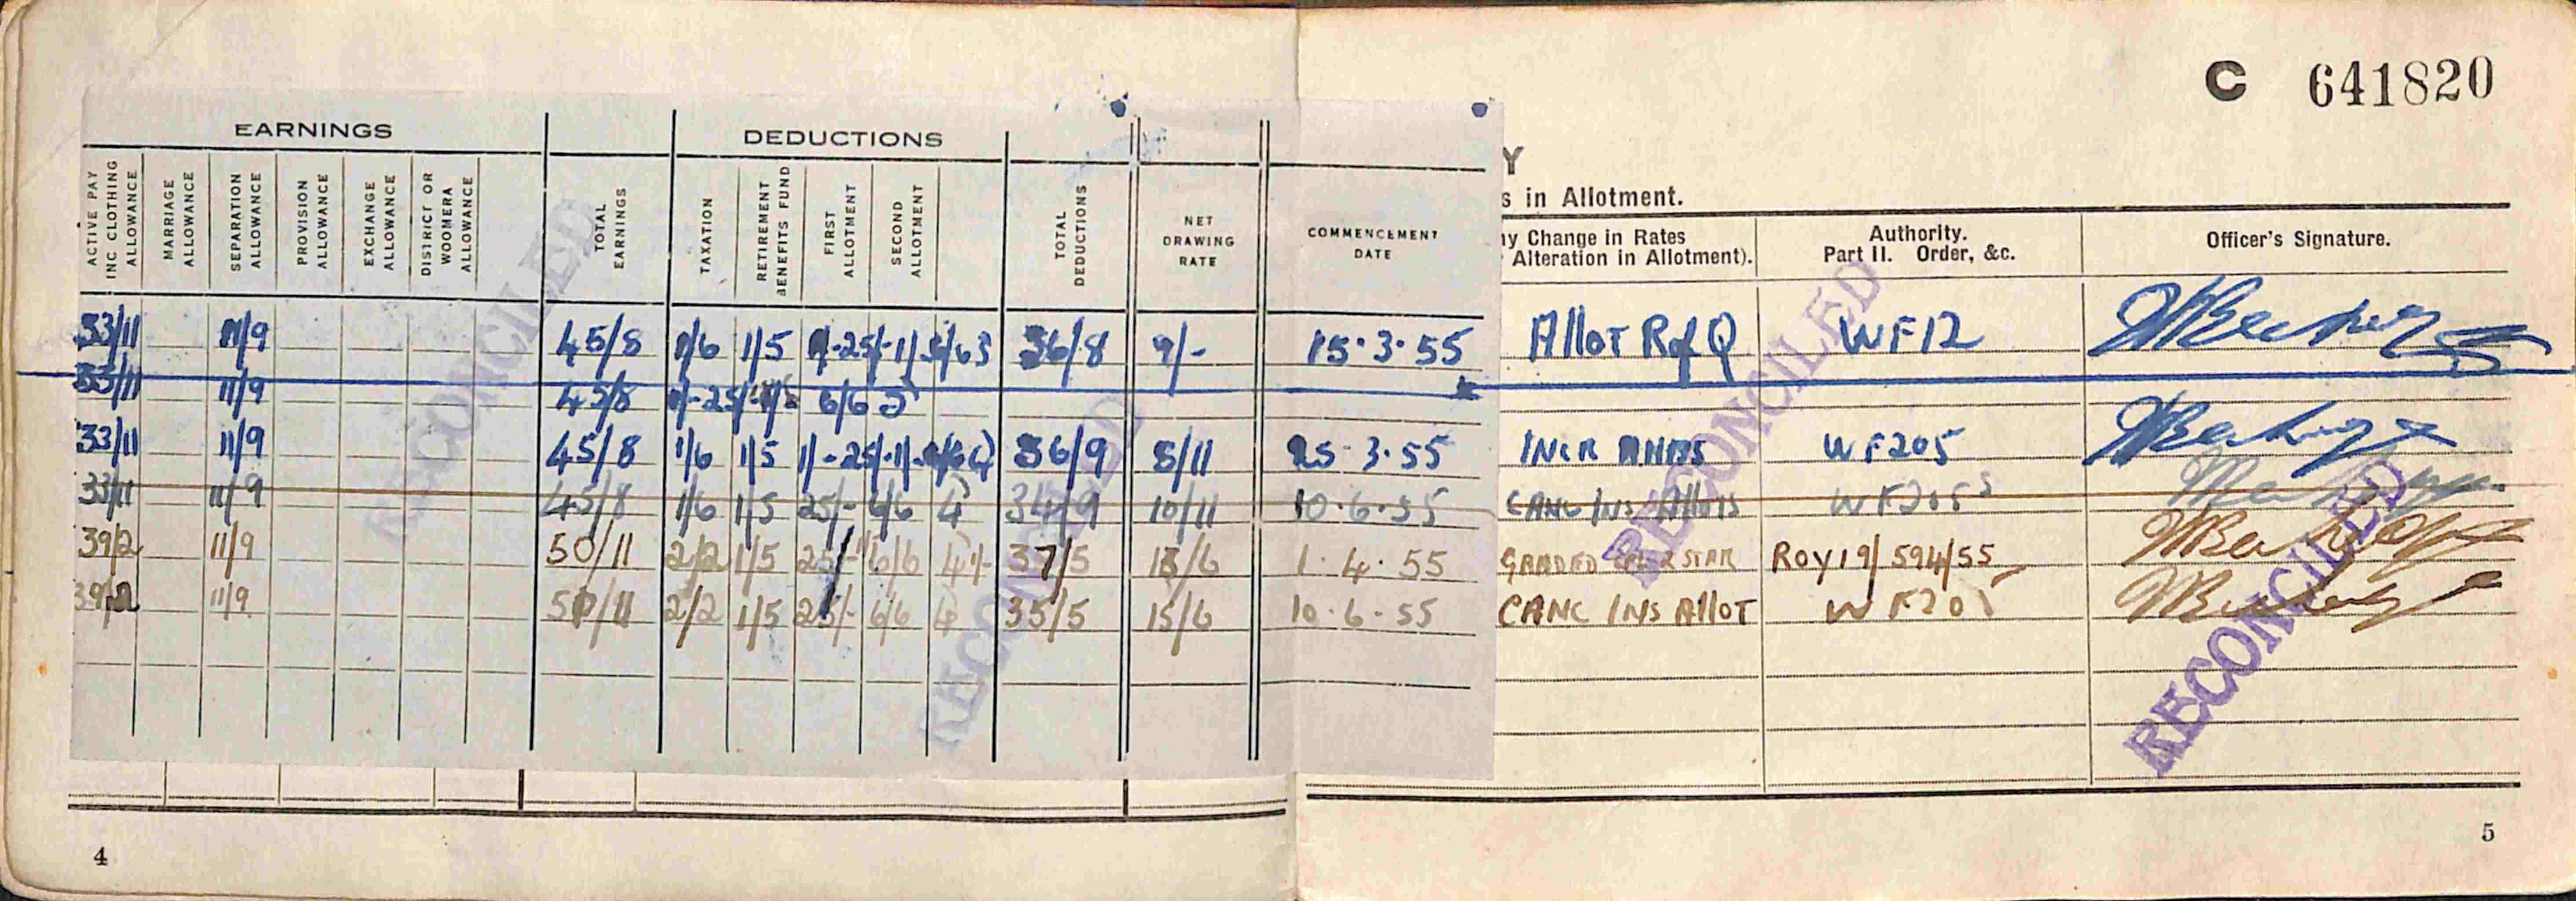 C 641820
EARNINGS DEDUCTIONS
Y
s in Allotment.
ACTIVE PAY INC CLOTHING ALLOWANCE
MARRIAGE ALLOWANCE
SEPARATION ALLOWANCE
PROVISION ALLOWANCE
EXCHANGE ALLOWANCE
DISTRICT OR WOOMERA ALLOWANCE
TOTAL EARNINGS
TAXATION
RETIREMENT BENEFITS FUND
FIRST ALLOTMENT
SECOND ALLOTMENT
TOTAL DEDUCTIONS
NET DRAWING RATE
COMMENCEMENT DATE
ny Change in Rates
Alteration in Allotment).
Authority.
Part II. Order, &c.
Officer's Signature.
33/11 11/9 45/8 1/6 1/5 36/8 9/- 15·3·55 Allot WF12
33/11 11/9 45/8
33/11 11/9 45/8 1/6 1/5 36/9 8/11 25·3·55 INCR WF205
33/11 11/9 45/8 1/6 1/5 25/- 6/6 4 34/9 10/11 10·6·55 CANC INS Allots WF205
39/2 11/9 50/11 2/2 1/5 25/- 6/6 37/5 13/6 1·4·55 GRADED 2 STAR ROY19/594/55
39/2 11/9 50/11 2/2 1/5 25/- 6/6 35/5 15/6 10·6·55 CANC INS Allot
RECONCILED
RECONCILED
RECONCILED
RECONCILED
4
5